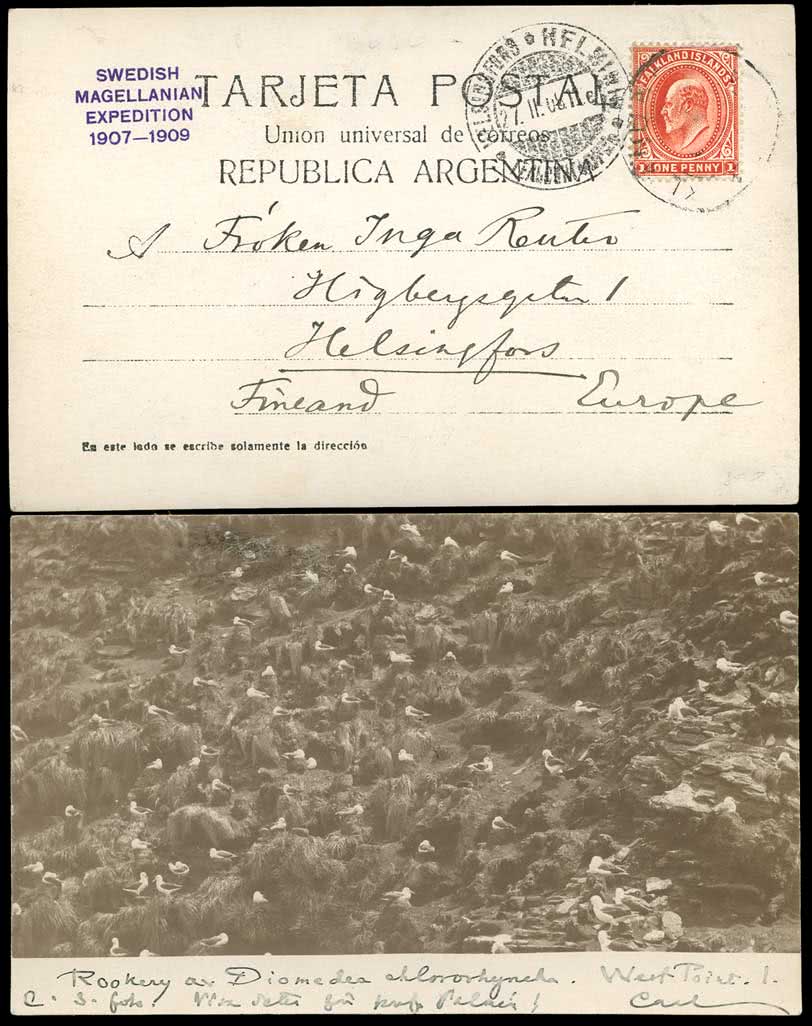 SWEDISH
MAGELLANIAN
EXPEDITION
1907—1909
TARJETA POSTAL
Union universal de correos
REPUBLICA ARGENTINA
HELSINGFORS HELSINKI
FALKLAND ISLANDS
1 ONE PENNY 1
A Fröken Inga Reuter
Högbergsgatan 1
Helsingfors
Finland Europe
En este lado se escribe solamente la dirección
Rookery av Diomedea chlororhyncha. West Point. I.
C. S. foto. Visa detta för prof. Palmén! Carl